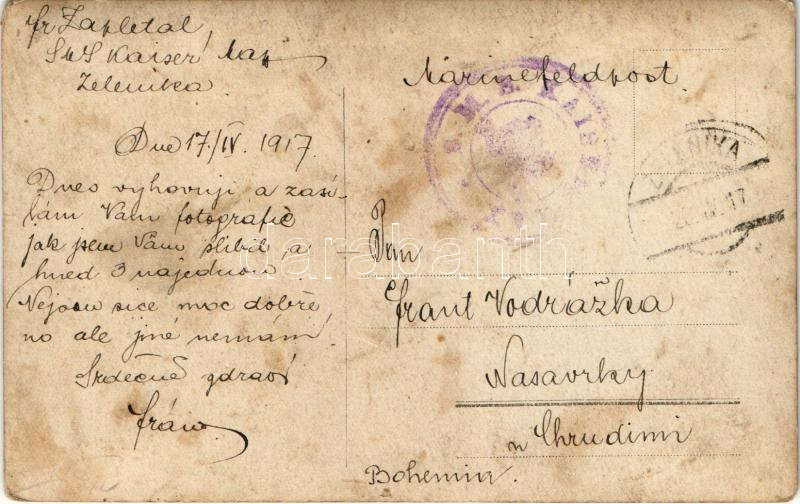 fr Zapletal
SMS Kaiser Max
Zelenika
Dne 17/IV. 1917.
Dnes vyhovuji a zasí-
lám Vám fotografie
jak jsem Vám slíbil a
hned 3 najednou.
Nejsou sice moc dobré
no ale jiné nemám.
Srdečně zdraví
Marinefeldpost.
S.M.S. KAISER
ZELENIKA
17
Pan
Frant Vodrážka
Nasavrky
u Chrudimi
Bohemia.
darabanth